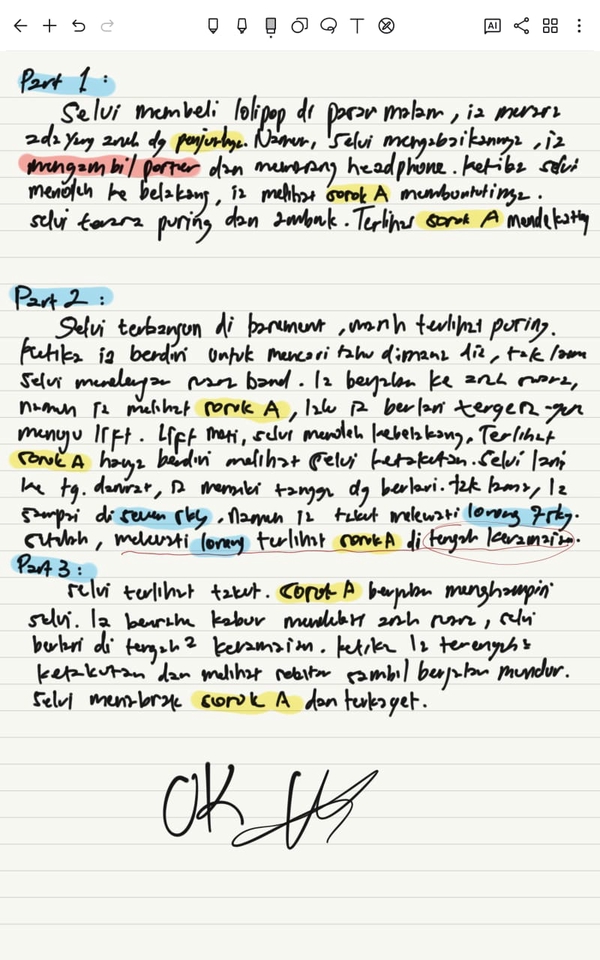 AI
Part 1 :
Selvi membeli lolipop di pasar malam, ia merasa
ada yang aneh dg penjualnya. Namun, selvi mengabaikannya, ia
mengambil poster dan memasang headphone. ketika selvi
menoleh ke belakang, ia melihat sosok A membuntutinya.
selvi terasa pusing dan ambruk. Terlihat sosok A mendekatinya
Part 2 :
Selvi terbangun di basement, masih terlihat pusing.
ketika ia berdiri untuk mencari tahu dimana dia, tak lama
selvi mendengar suara band. Ia berjalan ke arah suara,
namun ia melihat sosok A, lalu ia berlari tergesa-gesa
menuju lift. Lift mati, selvi menoleh kebelakang, Terlihat
sosok A hanya berdiri melihat selvi ketakutan. selvi lari
ke tg. darurat, ia menaiki tangga dg berlari. tak lama, Ia
sampai di seven sky. Namun ia takut melewati lorong 7sky.
setelah, melewati lorong terlihat sosok A di tengah keramaian.
Part 3 :
selvi terlihat takut. sosok A berjalan menghampiri
selvi. Ia berusaha kabur mendekati arah suara, selvi
berlari di tengah2 keramaian. ketika Ia terengah2
ketakutan dan melihat sekitar sambil berjalan mundur.
Selvi menabrak sosok A dan terkaget.
OK